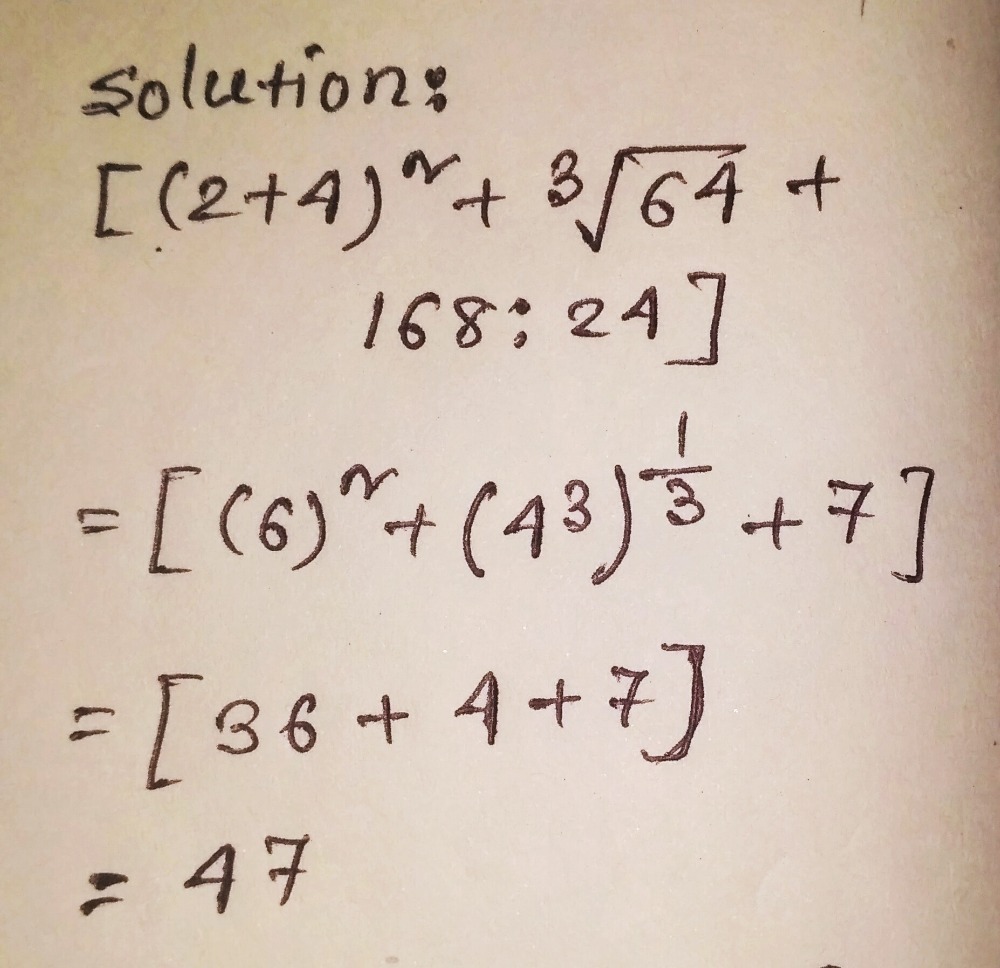 Solution:
[(2+4)² + ³√64 +
168 : 24]
= [(6)² + (4³)^(1/3) + 7]
= [36 + 4 + 7]
= 47